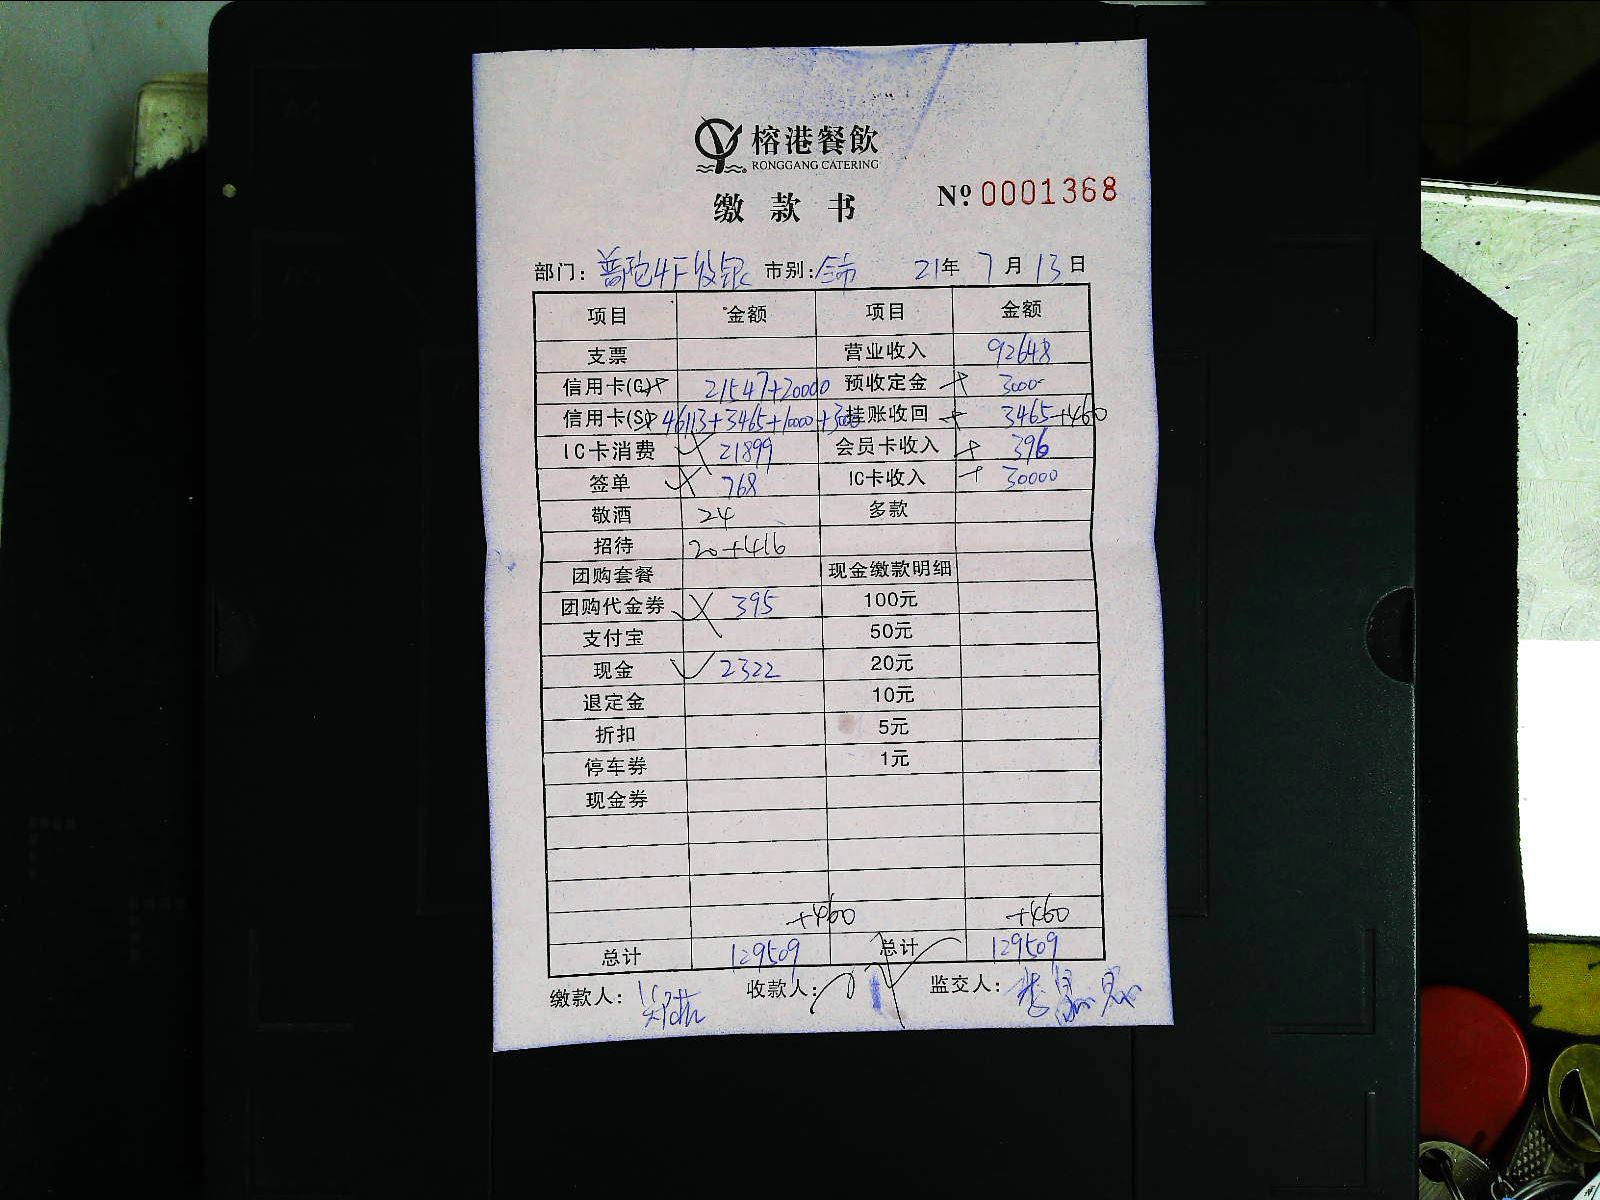 榕港餐飲
RONGGANG CATERING
缴款书
№ 0001368
部门: 普陀4F收银 市别: 全市 21年 7月 13日
项目 金额 项目 金额
支票 营业收入 92648
信用卡(G) 21547+20000 预收定金 + 3000
信用卡(S) 46113+3465+10000+3000 挂账收回 + 3465+460
IC卡消费 21899 会员卡收入 + 396
签单 768 IC卡收入 + 30000
敬酒 24 多款
招待 20+416
团购套餐 现金缴款明细
团购代金券 395 100元
支付宝 50元
现金 2322 20元
退定金 10元
折扣 5元
停车券 1元
现金券
+460 +460
总计 129509 总计 129509
缴款人: 收款人: 监交人: